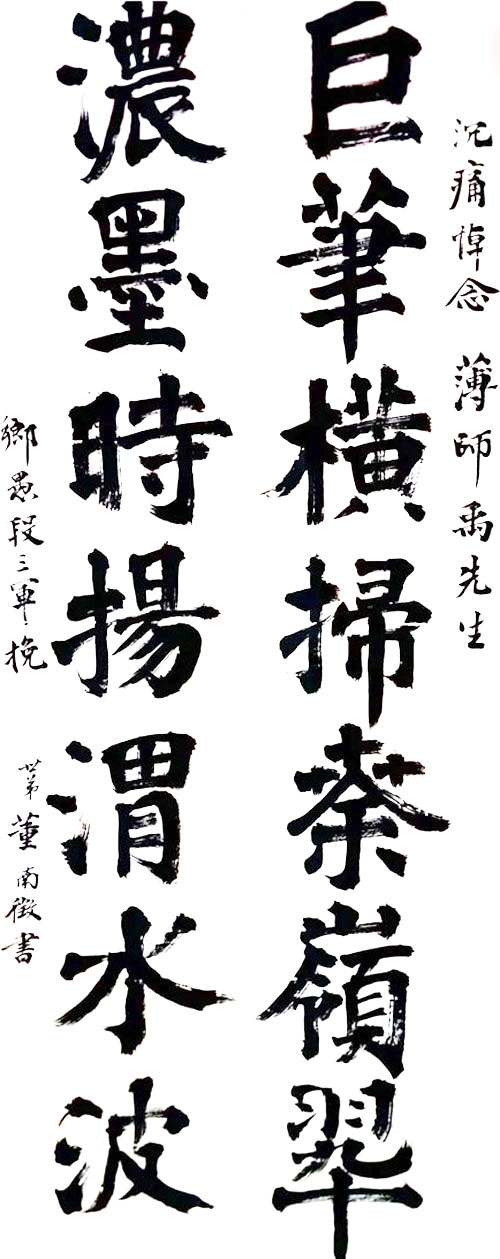 沉痛悼念 薄師禹先生
巨筆橫掃秦嶺翠
濃墨時揚渭水波
鄉愚段三軍挽 世弟董南徵書